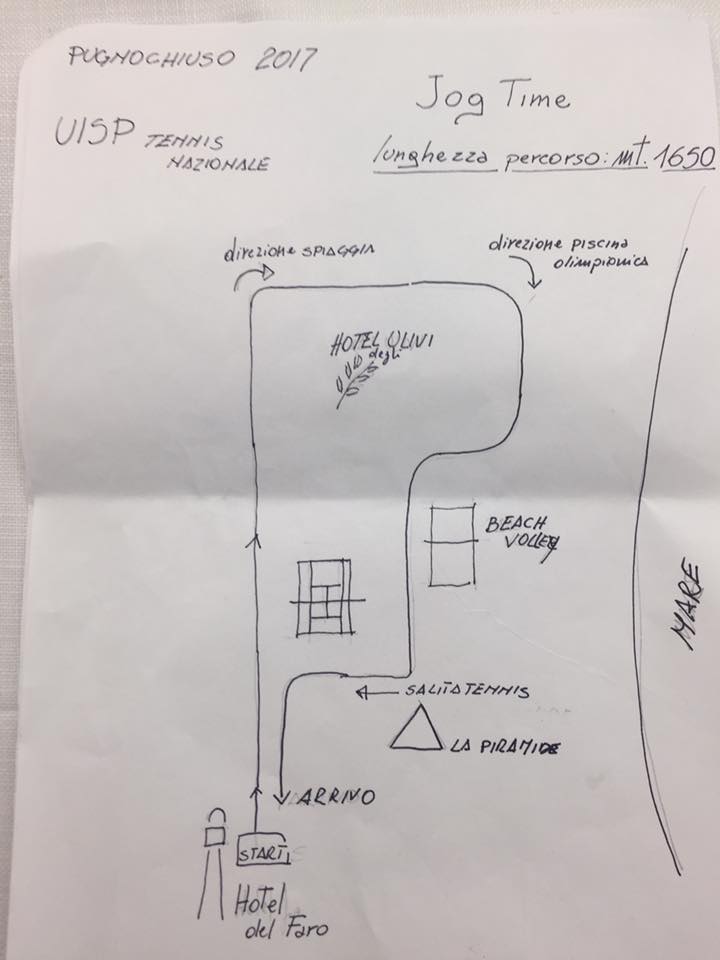 PUGNOCHIUSO 2017
Jog Time
UISP TENNIS
NAZIONALE
lunghezza percorso: mt. 1650
direzione SPIAGGIA
direzione PISCINA
OLIMPIONICA
HOTEL ULIVI
degli
BEACH
VOLLEY
MARE
SALITA TENNIS
LA PIRAMIDE
ARRIVO
START
Hotel
del Faro